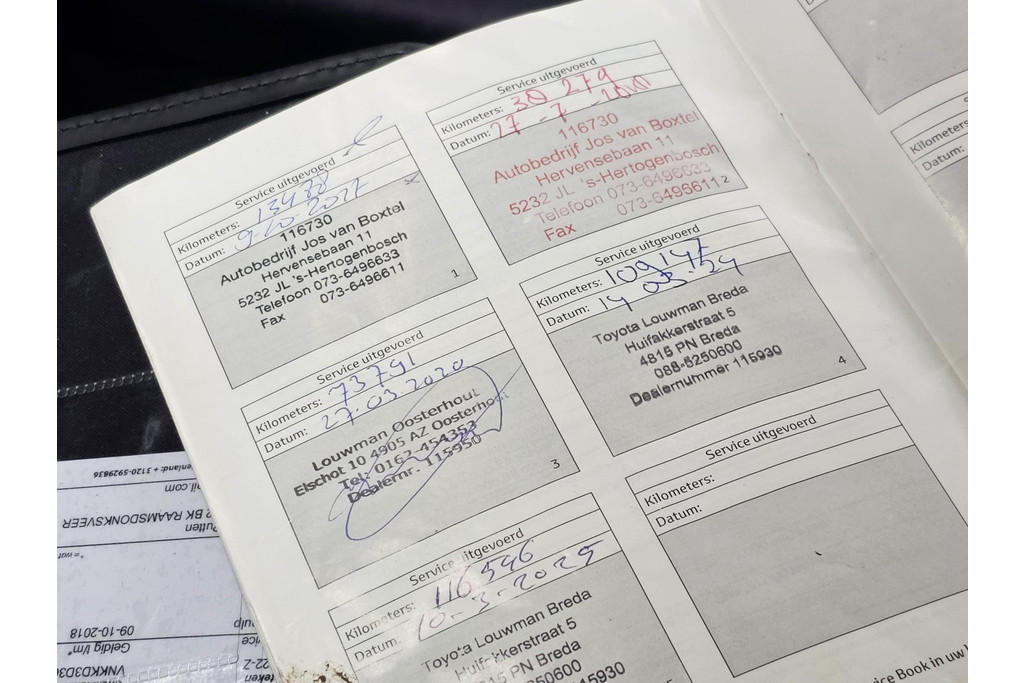 Service uitgevoerd
Kilometers: 13488
Datum: 9-10-2017
116730
Autobedrijf Jos van Boxtel
Hervensebaan 11
5232 JL 's-Hertogenbosch
Telefoon 073-6496633
073-6496611
Fax
1
Service uitgevoerd
Kilometers: 30 279
Datum: 27-7-
116730
Autobedrijf Jos van Boxtel
Hervensebaan 11
5232 JL 's-Hertogenbosch
Telefoon 073-6496633
073-6496611
Fax
2
Service uitgevoerd
Kilometers: 73791
Datum: 27-03-2020
Louwman Oosterhout
Elschot 10 4905 AZ Oosterhout
Tel: 0162-454353
Dealernr. 115950
3
Service uitgevoerd
Kilometers: 109147
Datum: 14 03-24
Toyota Louwman Breda
Huifakkerstraat 5
4815 PN Breda
088-5250600
Dealernummer 115930
4
Service uitgevoerd
Kilometers: 116546
Datum: 10-3-2025
Toyota Louwman Breda
Huifakkerstraat 5
4815 PN Breda
5250600
115930
Service uitgevoerd
Kilometers:
Datum:
Kilometers:
Datum:
ice Book in uw
enland: + 3120-5929836
il.com
BK RAAMSDONKSVEER
Putten
09-10-2018
Geldig t/m*
VNKKD3D3